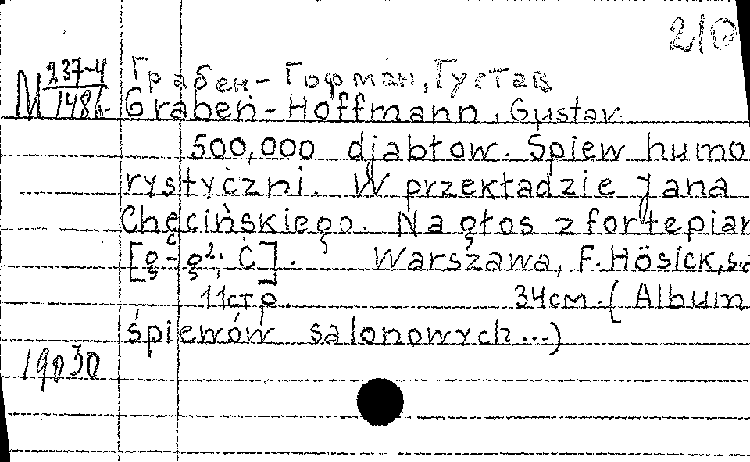 210
M 237-4/1486
Грабен-Гофман, Густав
Graben-Hoffmann, Gustav.
500,000 djabłow. Spiew humo
rystyczni. W przekładzie Jana
Chęcińskiego. Na głos z fortepian
[g-g²; C]. Warszawa, F. Hösick,
11 стр. 34 см. (Album
śpiewów salonowych...)
19030